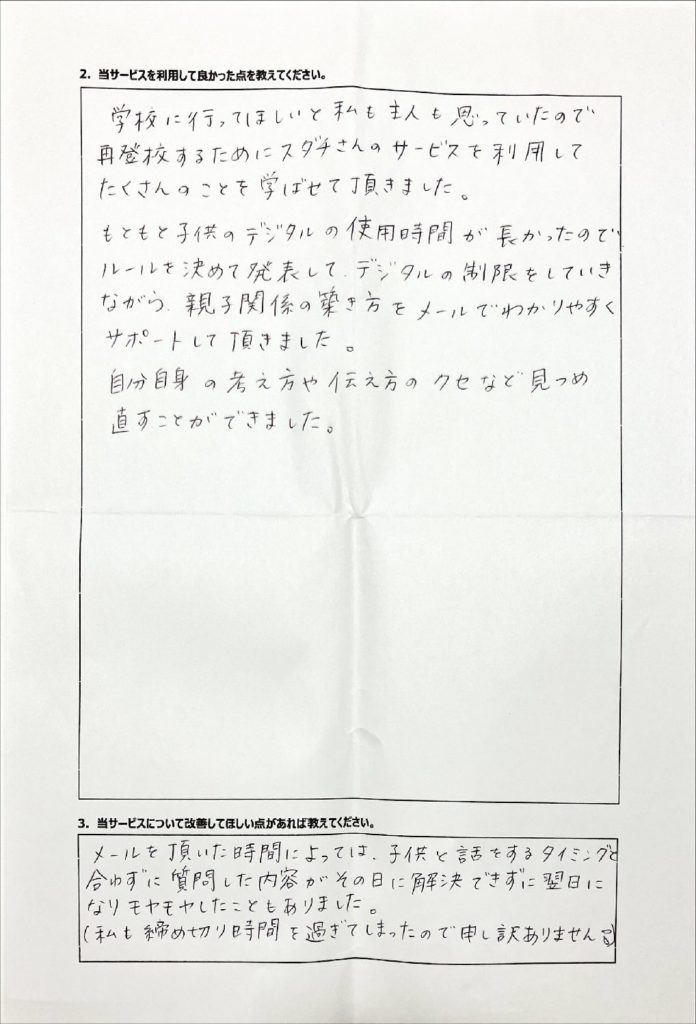 2. 当サービスを利用して良かった点を教えてください。
学校に行ってほしいと私も主人も思っていたので
再登校するためにスダチさんのサービスを利用して
たくさんのことを学ばせて頂きました。
もともと子供のデジタルの使用時間が長かったので
ルールを決めて発表して、デジタルの制限をしていき
ながら、親子関係の築き方をメールでわかりやすく
サポートして頂きました。
自分自身の考え方や伝え方のクセなど見つめ
直すことができました。
3. 当サービスについて改善してほしい点があれば教えてください。
メールを頂いた時間によっては、子供と話をするタイミングと
合わずに質問した内容がその日に解決できずに翌日に
なりモヤモヤしたこともありました。
(私も締め切り時間を過ぎてしまったので申し訳ありません